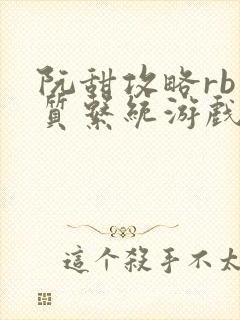 阮甜攻略rb
質繫統游戲
這个殺手不太